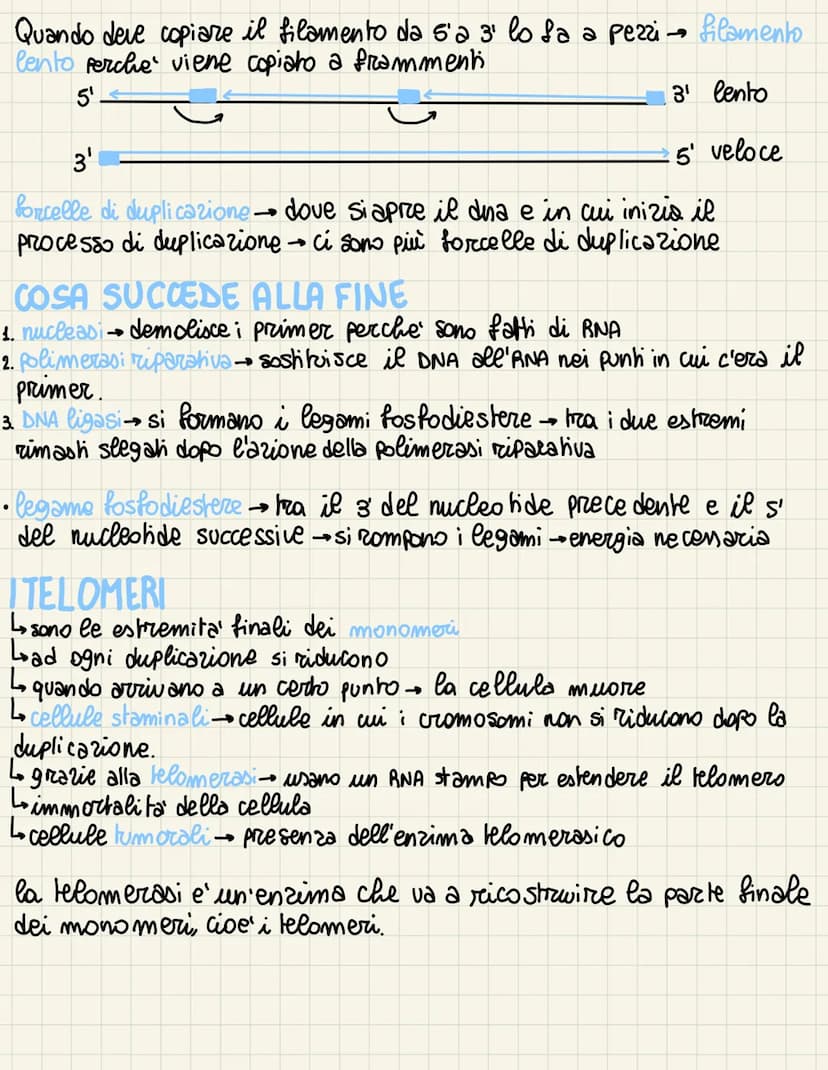 Quando deve copiare il filamento da 5' a 3' lo fa a pezzi → filamento
lento perche' viene copiato a frammenti
5' 3' lento
3' 5' veloce
forcelle di duplicazione → dove si apre il dna e in cui inizia il
processo di duplicazione → ci sono più forcelle di duplicazione
COSA SUCCEDE ALLA FINE
1. nucleasi → demolisce i primer perche' sono fatti di RNA
2. polimerasi riparativa → sostituisce il DNA all'RNA nei punti in cui c'era il
primer.
3. DNA ligasi → si formano i legami fosfodiestere → tra i due estremi
rimasti slegati dopo l'azione della polimerasi riparativa
• legame fosfodiestere → tra il 3' del nucleotide precedente e il 5'
del nucleotide successive → si rompono i legami → energia necessaria
I TELOMERI
↳ sono le estremita' finali dei monomeri
↳ ad ogni duplicazione si riducono
↳ quando arrivano a un certo punto → la cellula muore
↳ cellule staminali → cellule in cui i cromosomi non si riducono dopo la
duplicazione.
↳ grazie alla telomerasi → usano un RNA stampo per estendere il telomero
↳ immortalita' della cellula
↳ cellule tumorali → presenza dell'enzima telomerasico
la telomerasi e' un'enzima che va a ricostruire la parte finale
dei monomeri, cioe' i telomeri.